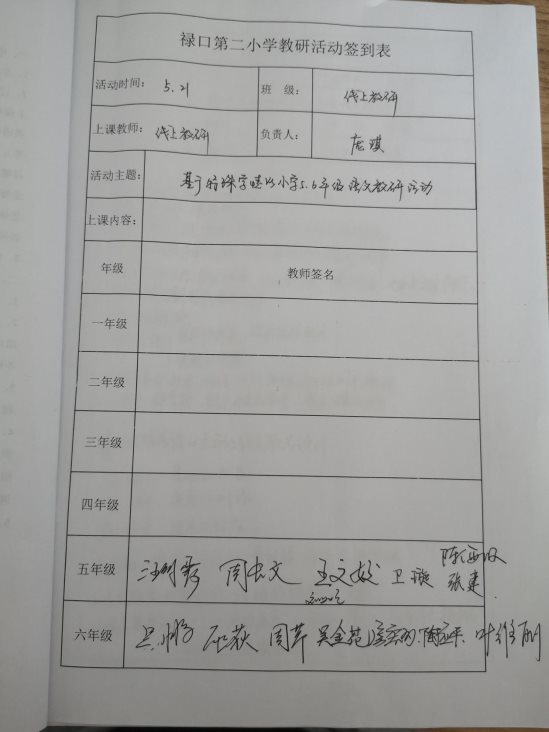 禄口第二小学教研活动签到表
活动时间: 5.21 班 级: 线上教研
上课教师: 线上教研 负责人: 庞琪
活动主题: 基于特殊学情的小学5.6年级语文教研活动
上课内容:
年级 教师签名
一年级
二年级
三年级
四年级
五年级 周忠文 王文娟 卫璇 张建
六年级 周芹 吴金苑